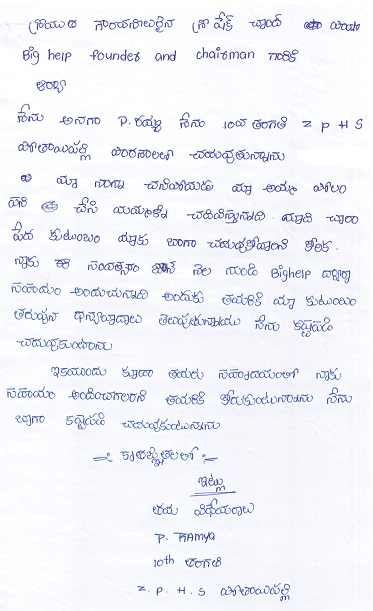 శ్రీయుత గౌరవనీయులైన శ్రీ షేక్ చాంద్ పాషా
Big help founder and chairman గారికి
ఆర్యా
నేను అనగా P. రమ్య నేను 10వ తరగతి Z P H S
పోతాయిపల్లి పాఠశాలలో చదువుతున్నాను
మా నాన్న చనిపోయాడు మా అమ్మ పొలం
పని చేసి మమ్మల్ని చదివిస్తున్నది. మాది చాలా
పేద కుటుంబం మాకు బాగా చదువుకోవాలని కోరిక.
నాకు ఈ సంవత్సరం జూన్ నెల నుండి Bighelp ద్వారా
సహాయం అందుచున్నది అందుకు తమరికి మా కుటుంబం
తరుపున ధన్యవాదాలు తెలుపుతున్నాము నేను కష్టపడి
చదువుకుంటాను
ఇకముందు కూడా తమరు సహృదయంతో నాకు
సహాయం అందించగలరని తమరికి కోరుకుంటున్నాను నేను
బాగా కష్టపడి చదువుకుంటున్నాను
కృతజ్ఞతలతో
ఇట్లు
తమ విధేయురాలు
P. RAMYA
10th తరగతి
Z. P. H. S పోతాయిపల్లి